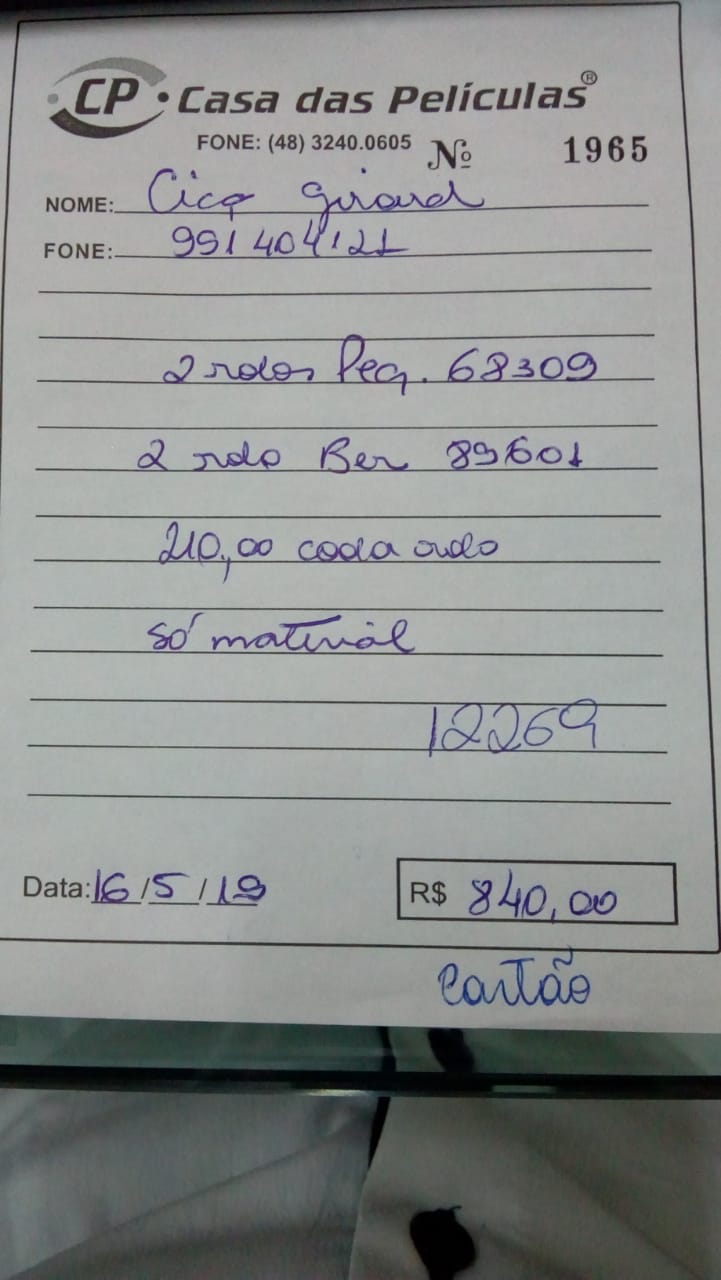 CP • Casa das Películas®
FONE: (48) 3240.0605 Nº 1965
NOME:
FONE: 991404121
2 rolos Peq. 68309
2 rolo Ber 89601
210,00 cada rolo
só material
12269
Data: 16/5/19 R$ 840,00
Cartão